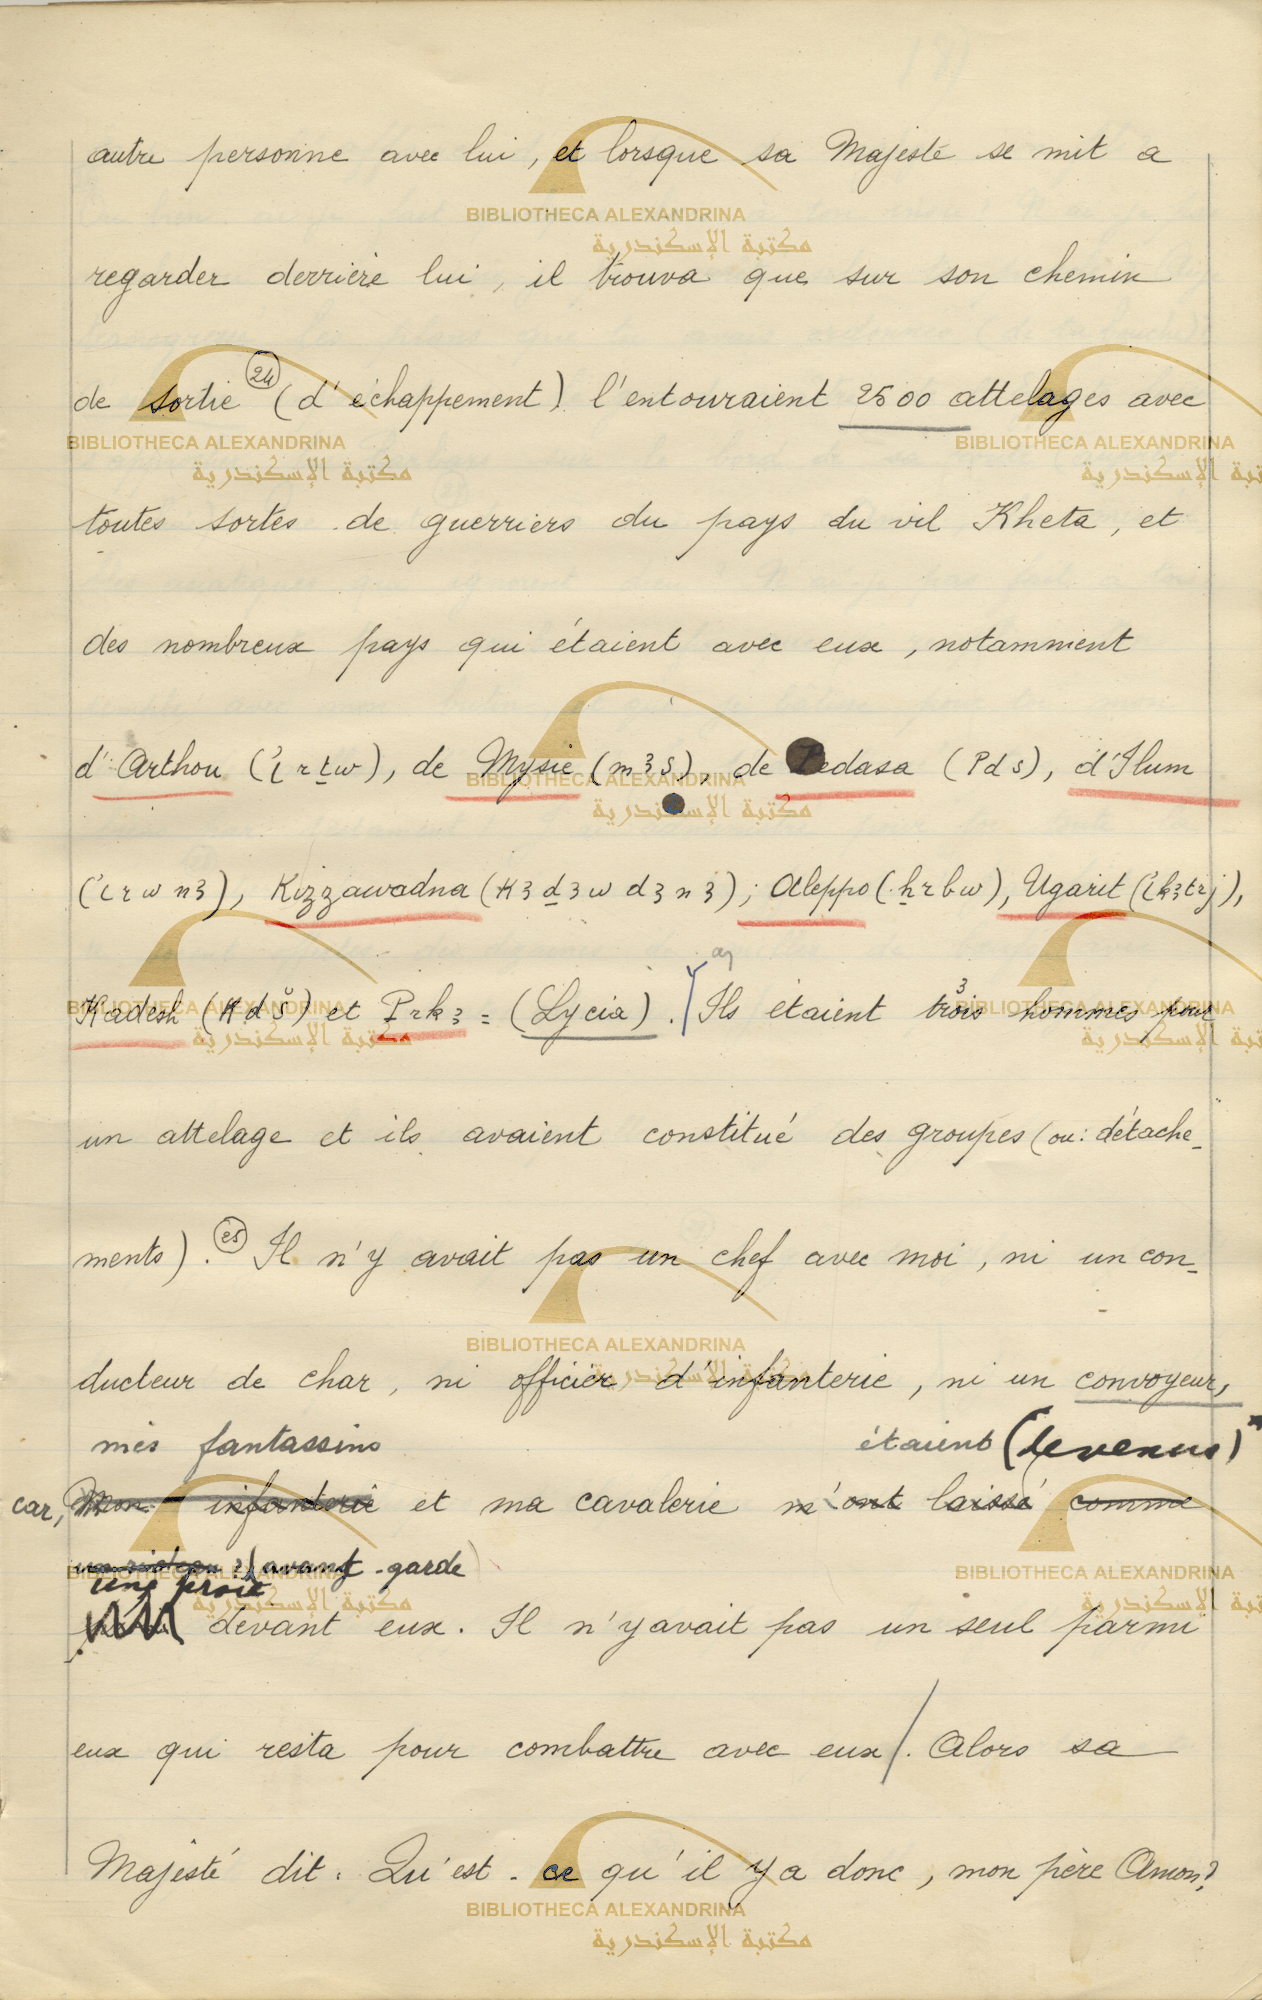 autre personne avec lui, et lorsque sa Majesté se mit a
regarder derrière lui, il trouva que sur son chemin
de sortie (24) (d'échappement) l'entouraient 2500 attelages avec
toutes sortes de guerriers du pays du vil Kheta, et
des nombreux pays qui étaient avec eux, notamment
d'Arthou (ỉrṯw), de Mysie (m3s), de Pedasa (Pds), d'Ilum
(ỉrwn3), Kizzawadna (K3ḏ3wd3n3); Aleppo (ḫrbw), Ugarit (ỉk3trj),
Kadesh (Kdš) et Prk3 = (Lycia). Ils étaient trois 3 hommes pour
un attelage et ils avaient constitué des groupes (ou: détache-
ments). (25) Il n'y avait pas un chef avec moi, ni un con-
ducteur de char, ni officier d'infanterie, ni un convoyeur,
mes fantassins étaient (devenus)
car, Mon infanterie et ma cavalerie m'ont laissé comme
un rideau ?(avant-garde)
une proie
devant eux. Il n'y avait pas un seul parmi
eux qui resta pour combattre avec eux. Alors sa
Majesté dit: Qu'est-ce qu'il y a donc, mon père Amon?
BIBLIOTHECA ALEXANDRINA
مكتبة الإسكندرية